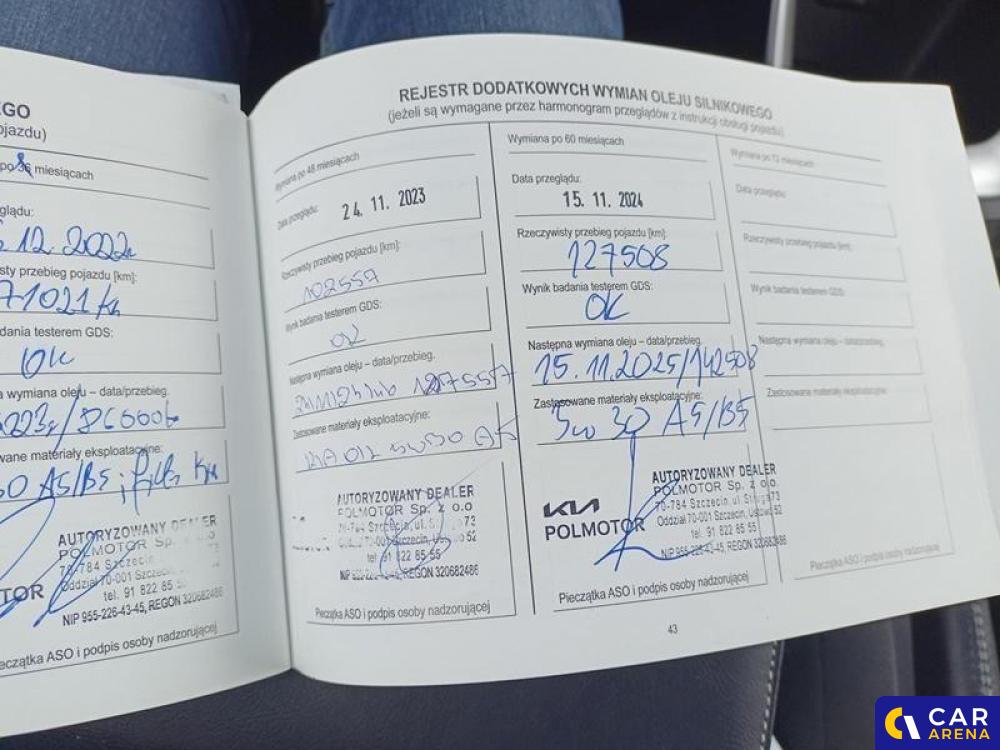 EGO
ojazdu)
po 36 miesiącach
glądu:
12.2022
sty przebieg pojazdu [km]:
71021 km
dania testerem GDS:
OK
a wymiana oleju – data/przebieg.
wane materiały eksploatacyjne:
30 A5/B5;
AUTORYZOWANY DEALER
POLMOTOR Sp.
70-784 Szczecin
Oddział 70-001 Szczecin
tel. 91 822 85
TOR
NIP 955-226-43-45, REGON 320682486
eczątka ASO i podpis osoby nadzorującej
REJESTR DODATKOWYCH WYMIAN OLEJU SILNIKOWEGO
(jeżeli są wymagane przez harmonogram przeglądów z instrukcji obsługi pojazdu)
Wymiana po 48 miesiącach
Data przeglądu:
24. 11. 2023
Rzeczywisty przebieg pojazdu [km]:
102557
Wynik badania testerem GDS:
OK
Następna wymiana oleju – data/przebieg.
Zastosowane materiały eksploatacyjne:
5W30 A5
AUTORYZOWANY DEALER
POLMOTOR Sp. z o.o
70-784 Szczecin, ul. 73
52
tel. 91 822 85 55
REGON 320682486
Pieczątka ASO i podpis osoby nadzorującej
Wymiana po 60 miesiącach
Data przeglądu:
15. 11. 2024
Rzeczywisty przebieg pojazdu [km]:
127508
Wynik badania testerem GDS:
OK
Następna wymiana oleju – data/przebieg.
15.11.2025/142508
Zastosowane materiały eksploatacyjne:
5w30 A5/B5
KIA
POLMOTOR
AUTORYZOWANY DEALER
POLMOTOR Sp. z o.o.
70-784 Szczecin, ul. Struga 73
Oddział 70-001 Szczecin, Ustowo 52
tel. 91 822 85 55
NIP 955-226-43-45, REGON 320682486
Pieczątka ASO i podpis osoby nadzorującej
Wymiana po 72 miesiącach
Data przeglądu:
Rzeczywisty przebieg pojazdu [km]:
Wynik badania testerem GDS:
Następna wymiana oleju – data/przebieg.
Zastosowane materiały eksploatacyjne:
Pieczątka ASO i podpis osoby nadzorującej
43
CAR
ARENA